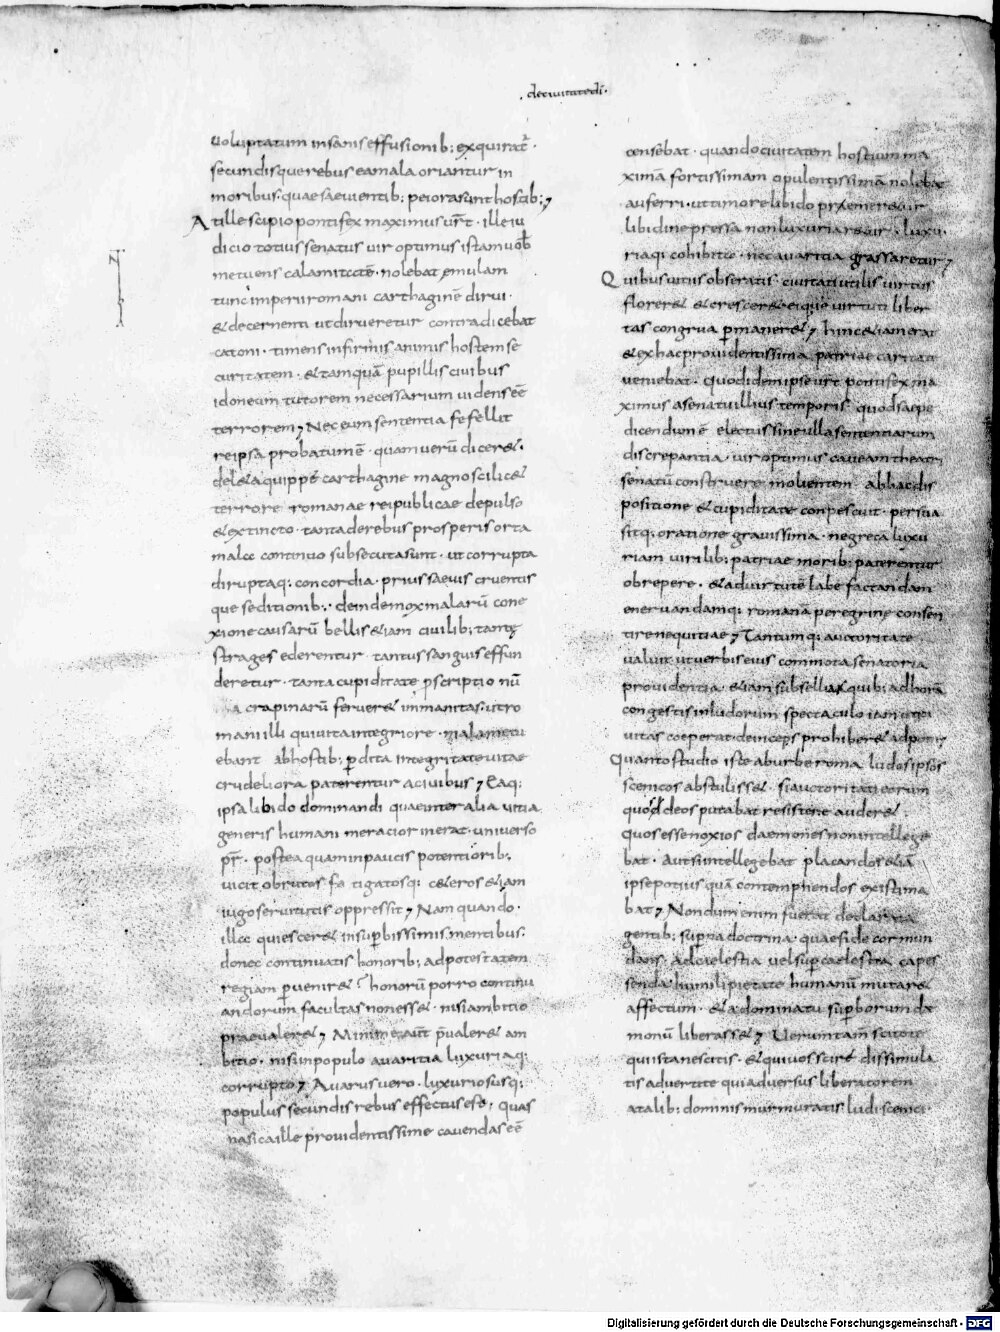 . de ciuitate dī .
uoluptatum insanis effusionib; exquirat̄ .
secundisque rebus ea mala oriantur in
moribus . quae saeuientib; peiora sunt hostib;
At ille scipio pontifex maximus ur̄t . ille iu
dicio totius senatus uir optimus istam uob̄
metuens calamitatē . nolebat emulam
tunc imperii romani carthaginē dirui .
& decernenti ut dirueretur contradicebat
catoni . timens infirmis animis hostem se
curitatem . & tamquā pupillis ciuibus
idoneum tutorem necessarium uidens eē
terrorem Nec eum sententia fefellit
re ipsa probatum ē . quam uerū dicer& .
del&a quippe carthagine magno scilic&
terrore romanae rei publicae depulso
& extincto . tanta de rebus prosperis orta
mala continuo subsecuta sunt . ut corrupta
diruptaq; concordia . prius saeuis cruentis
que seditionib; . deinde mox malarū cone
xione causarū bellis &iam ciuilib; tantę
strages ederentur . tantus sanguis effun
deretur . tanta cupiditate p̄scriptio nū
ac rapinarū feruer& inmanitas . ut ro
mani illi qui uita integriore . mala metu
ebant ab hostib; p̄dita integritate uitae
crudeliora paterentur a ciuibus Eaq;
ipsa libido dominandi quae inter alia uitia
generis humani meracior inerat . uniuerso
pr̄ . postea quam in paucis potentiorib;
uicit obrutos fa tigatosq; c&eros &iam
iugo seruitutis oppressit Nam quando .
illa quiescer& in sup̄bissimis mentibus .
donec continuatis honorib; ad potestatem
regiam p̄uenir& ? honorū porro continu
andorum facultas non ess& . nisi ambitio
praeualer& Minime aut̄ p̄ualer& am
bitio . nisi in populo auaritia luxuriaq;
corrupto Auarus uero . luxuriosusq;
populus secundis rebus effectus est . quas
nasica ille prouidentissime cauendas eē
censebat . quando ciuitatem hostium ma
ximā fortissimam opulentissimā nolebat
auferri . ut timore libido praemeretur
libidine pressa non luxuriaretur . luxu
riaq; cohibita . nec auaritia grassaretur
Quibus uitiis obseratis . ciuitati utilis uirtus
florer& & crescer& eique uirtuti liber
tas congrua p̄maner& hinc &iam erat
& ex hac prouidentissima patriae caritate
ueniebat . quod idem ipse ur̄t pontifex ma
ximus a senatu illius temporis quod saepe
dicendum ē electus sine ulla sententiarum
discrepantia . uir optimus caueam theatri
senatū construere molientem . ab hac dis
positione & cupiditate conpescuit . persua
sitq; oratione grauissima . ne greca luxu
riam uirilib; patriae morib; paterentur
obrepere . & ad uirtutē labefactandam
eneruandamq; romanā peregrinę consen
tire nequitiae Tantumq; auctoritate
ualuit ut uerbis eius commota senatoria
prouidentia . &iam subsellia quib; ad horā
congestis in ludorum spectaculo iam uti ci
uitas coeperat . deinceps prohiber& adponi
Quanto studio iste ab urbe roma ludos ipsos
scenicos abstuliss& . si auctoritati eorum
quos deos putabat resistere auder& .
quos esse noxios daemones non intellege
bat . aut si intellegebat placandos &iā
ipse potius quā contempnendos existima
bat Nondum enim fuerat declarata
gentib; supna doctrina quae fide cor mun
dans . ad caelestia uel sup̄caelestia capes
senda humili pietate humanū mutar&
affectum . & a dominatu sup̄borum dae
monū liberass& Uerum tam̄ scitote
qui ista nescitis . & qui uos scire dissimula
tis aduertite qui aduersus liberatorem
a talib; dominis murmuratis ludi scenici .
Digitalisierung gefördert durch die Deutsche Forschungsgemeinschaft - DFG